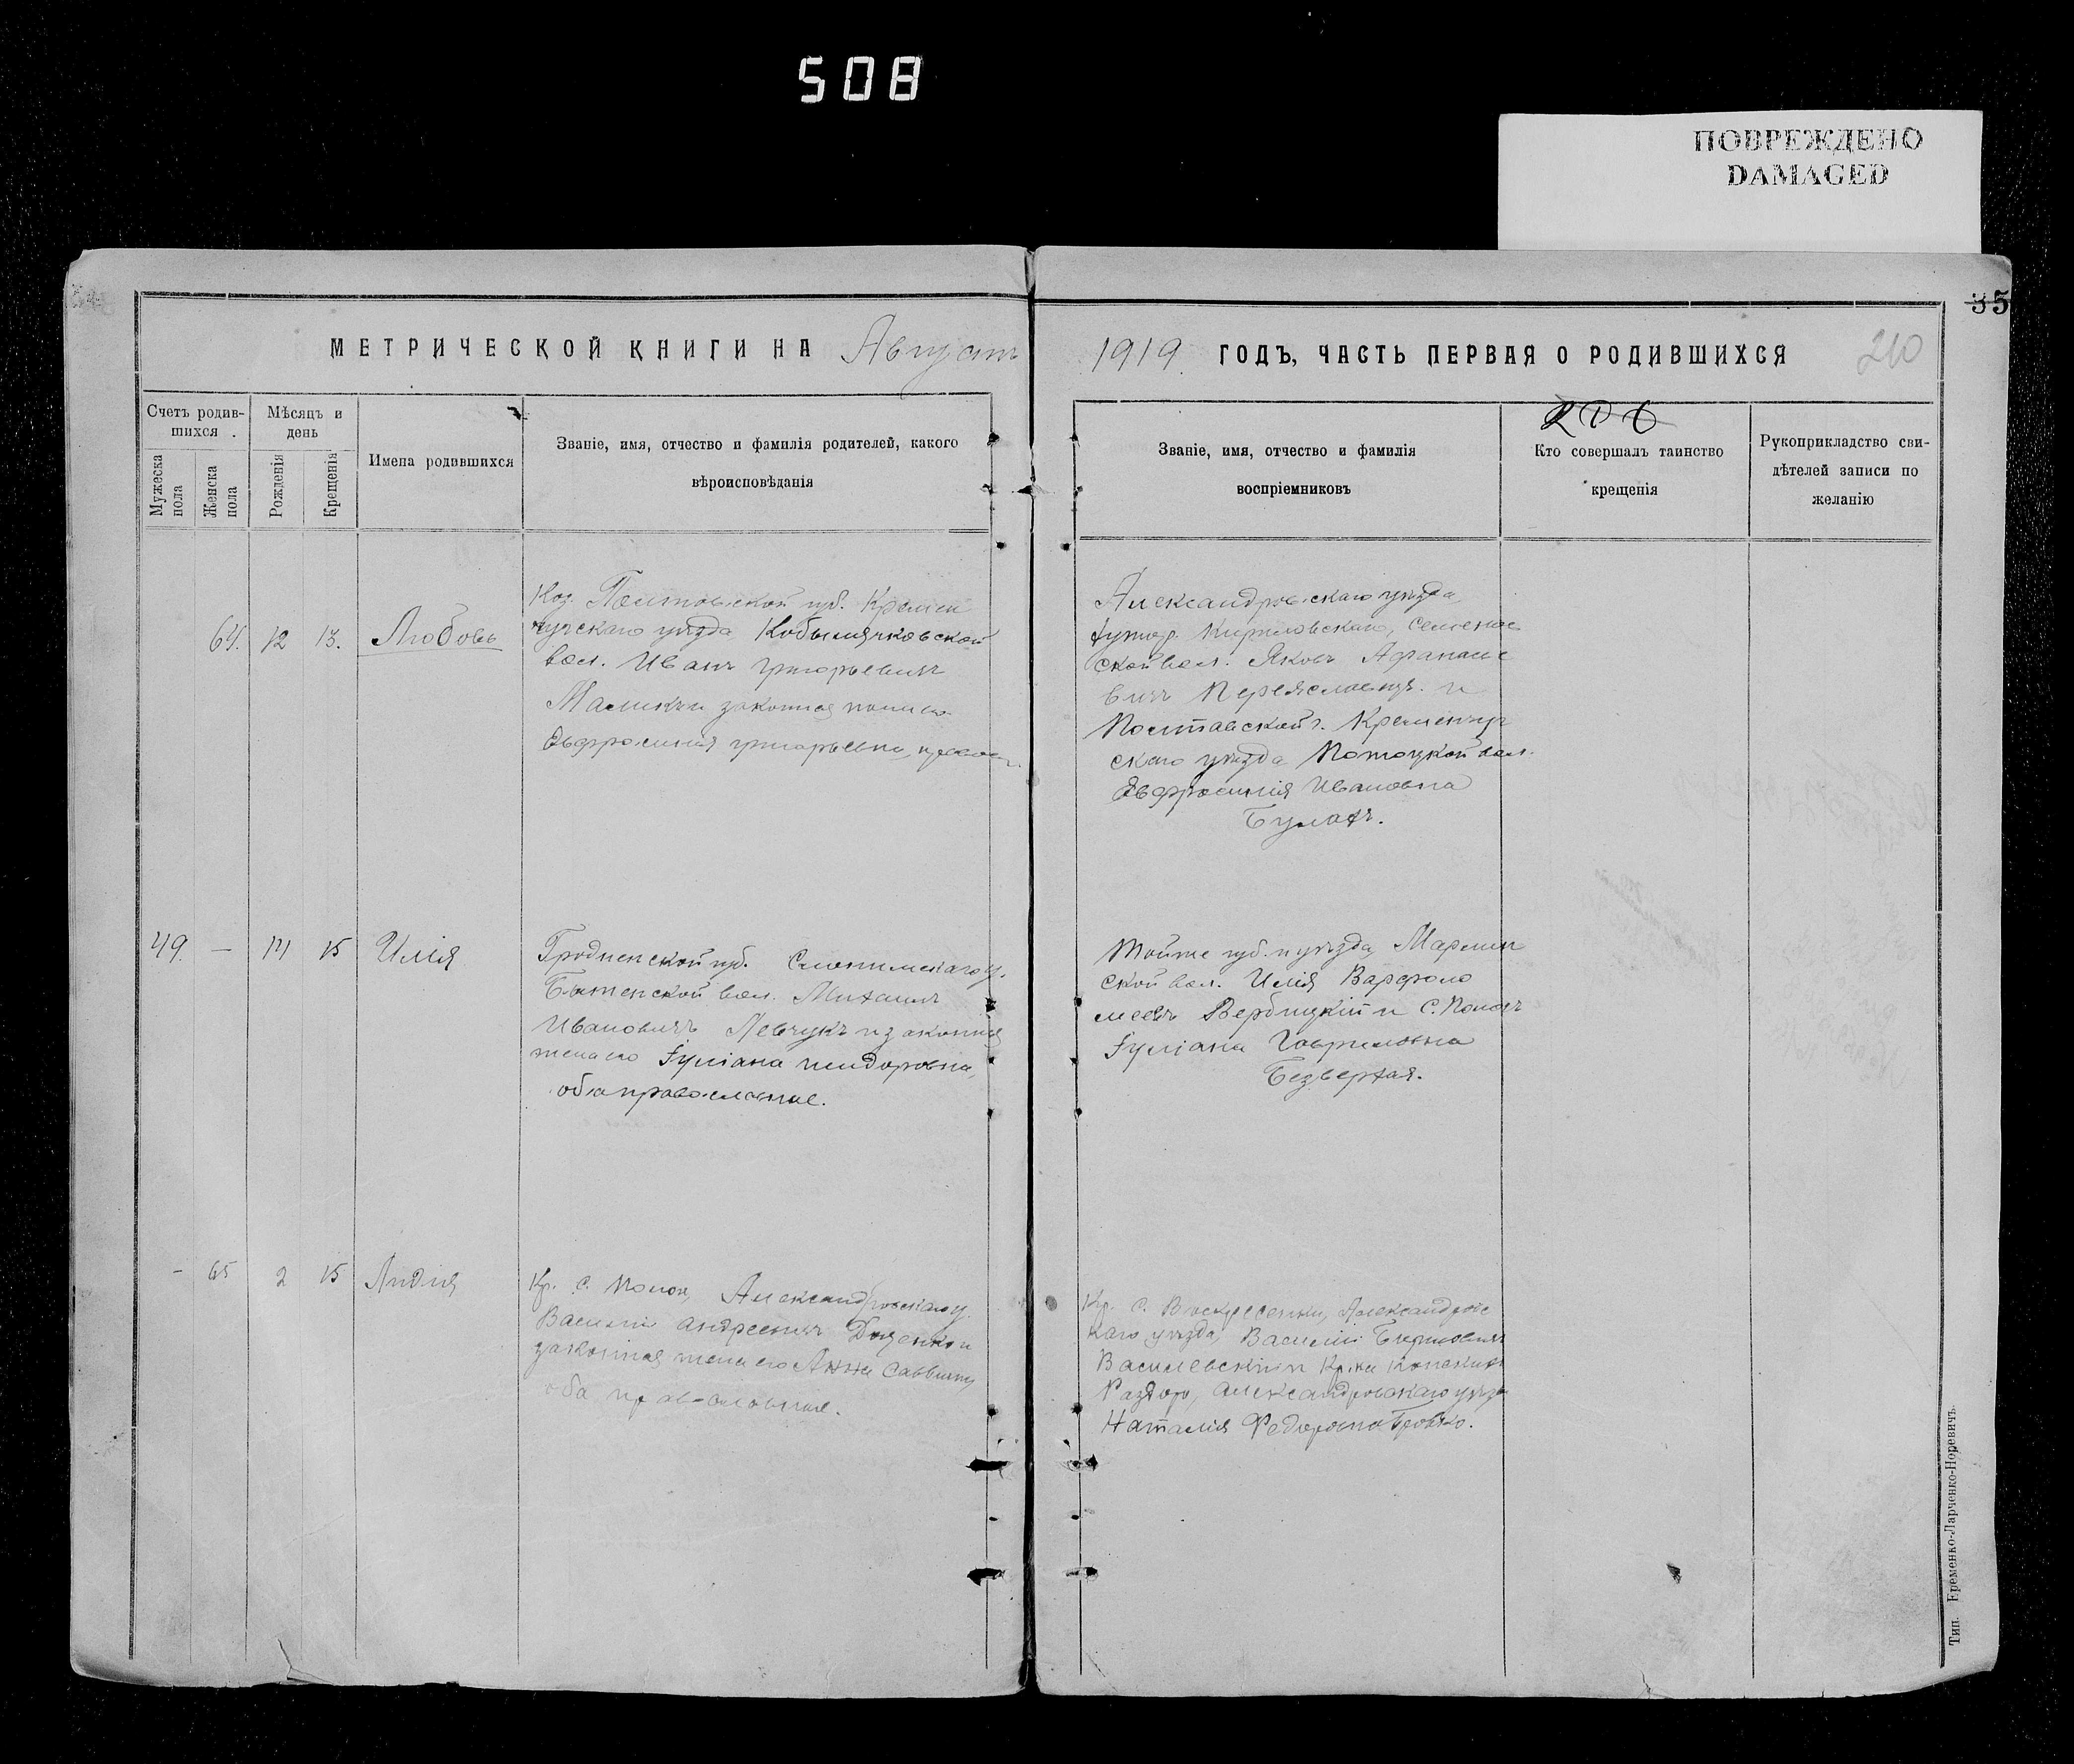 508
ПОВРЕЖДЕНО
DAMAGED
35
210
МЕТРИЧЕСКОЙ КНИГИ НА Августъ
1919. ГОДЪ, ЧАСТЬ ПЕРВАЯ О РОДИВШИХСЯ
Счетъ родив-
шихся
Мужеска
пола
Женска
пола
Мѣсяцъ и
день
Рожденія
Крещенія
Имена родившихся
Званіе, имя, отчество и фамилія родителей, какого
вѣроисповѣданія
Званіе, имя, отчество и фамилія
воспріемниковъ
Кто совершалъ таинство
крещенія
Рукоприкладство сви-
дѣтелей записи по
желанію
64. 12 13. Любовь
Коз. Полтавской губ. Кремен
чугскаго уѣзда Кобелячковской
вол. Иванъ Григорьевичъ
законная
Евфросинія Григорьевна,
Александровскаго уѣзда
скойвол. Яковъ Афанасіе
вичъ и
Полтавской г. Кременчуг
скаго уѣзда Потоцкой вол.
Евфросинія Ивановна
Булахъ.
49. — 14 15 Илія
Гродненской губ. Слонимскаго у.
Бытенской вол. Михаилъ
Ивановичъ Левчукъ и законная
жена его Іуліана
оба православные.
Тойже губ. и уѣзда,
ской вол. Илія Варфоло
меевъ Вербицкій и с.
Іуліана Гавриловна
Безверхая.
- 65 2 15 Лидія
Кр. с. Александровскаго у.
Василій Андреевичъ Доценко и
законная жена его Анна Саввина
оба православные.
Кр. с. Воскресенки, Александровс
каго уѣзда, Василій
Василевскій и Кр.ка
Раздоръ, Александровскаго уѣзда
Наталія Федоровна
Тип. Еременко-Ларченко-Норевичъ.